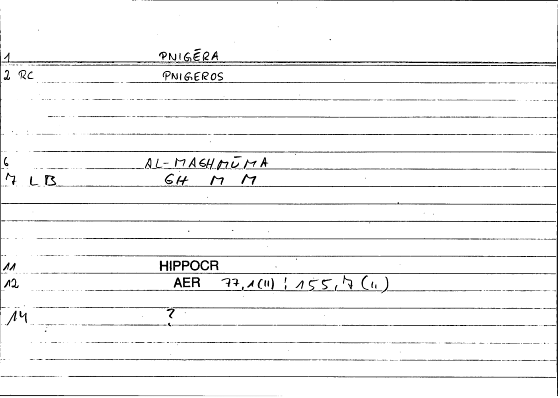 1 PNIGĒRA
2 RC PNIGEROS
6 AL-MAGHMŪMA
7 LB GH M M
11 HIPPOCR
12 AER 77,1(11) ; 155,7(11)
14 ?